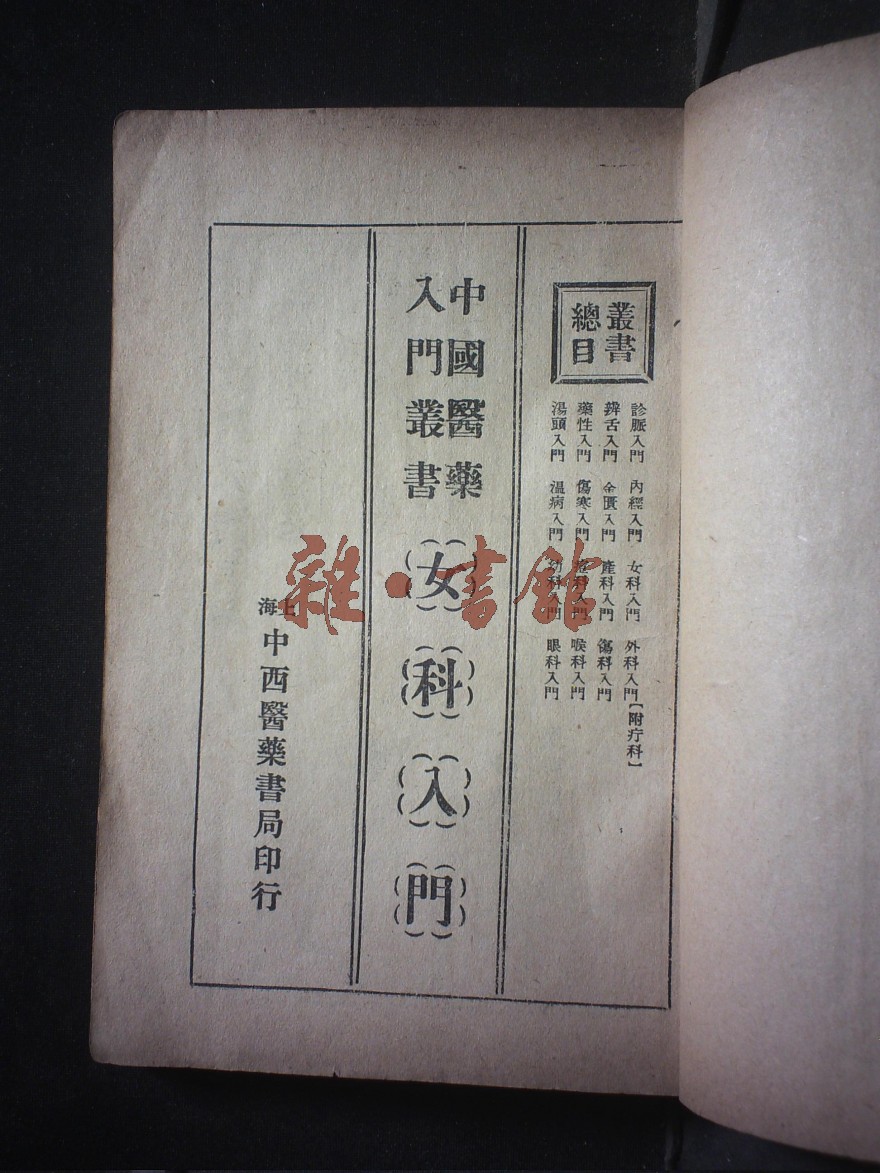 叢書
總目
診脈入門　內經入門　女科入門　外科入門【附疔科】
辨舌入門　金匱入門　產科入門　傷科入門
藥性入門　傷寒入門　科入門　喉科入門
湯頭入門　溫病入門　幼科入門　眼科入門
中國醫藥
入門叢書
女科入門
上海
中西醫藥書局印行
雜·書館